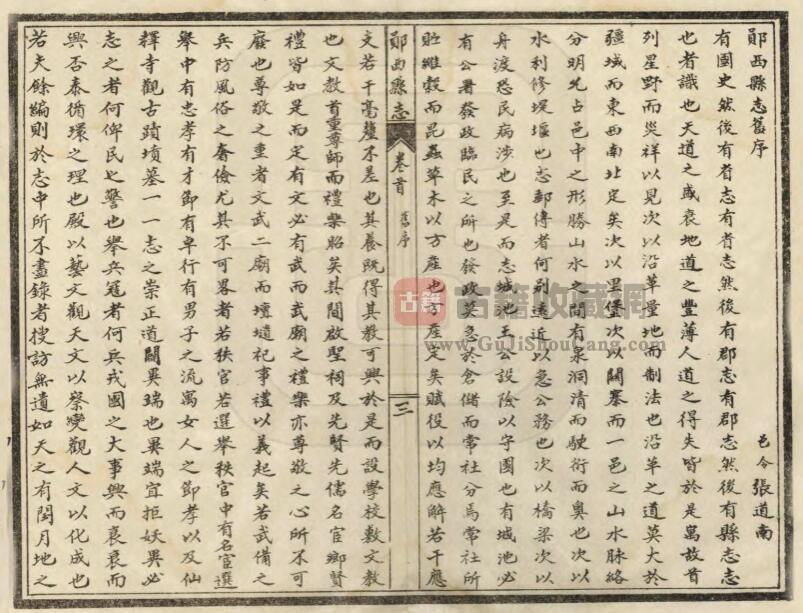 鄖西縣志舊序
邑令張道南
有國史然後有省志有省志然後有郡志有郡志然後有縣志志
也者識也天道之盛衰地道之豐薄人道之得失皆於是寓故首
列星野而災祥以見次以沿革量地而制法也沿革之道莫大於
疆域而東西南北定矣次以里堡次以關寨而一邑之山水脉絡
分明先占邑中之形勝山水之間有泉洞清而駛衍而奧也次以
水利修堤堰也志郵傳者何别遠近以急公務也次以橋梁次以
舟渡恐民病涉也至是而志城池王公設險以守國也有城池必
有公署發政臨民之所也發政莫急於倉儲而常社分焉常社所
貯維穀而昆蟲草木以方產也方產定矣賦役以均應解若干應
鄖西縣志
卷首
舊序
三
支若干毫釐不差也其養既得其教可興於是而設學校敷文教
也文教首重尊師而禮樂昭矣其間啟聖祠及先賢先儒名宦鄉賢
禮皆如是而定有文必有武而武廟之禮樂亦尊敬之心所不可
廢也尊敬之重者文武二廟而壇壝祀事禮以義起矣若武備之
兵防風俗之奢儉尤其不可畧者若秩官若選舉秩官中有名宦選
舉中有忠孝有才節有卓行有男子之流寓女人之節孝以及仙
釋寺觀古蹟墳墓一一志之崇正道闢異端也異端宜拒妖異必
志之者何俾民也警也舉兵寇者何兵戎國之大事興而衰衰而
興否泰循環之理也殿以藝文觀天文以察變觀人文以化成也
若夫餘編則於志中所不盡錄者搜訪無遺如天之有閏月地之
古籍
古籍收藏網
www.GuJiShouCang.com